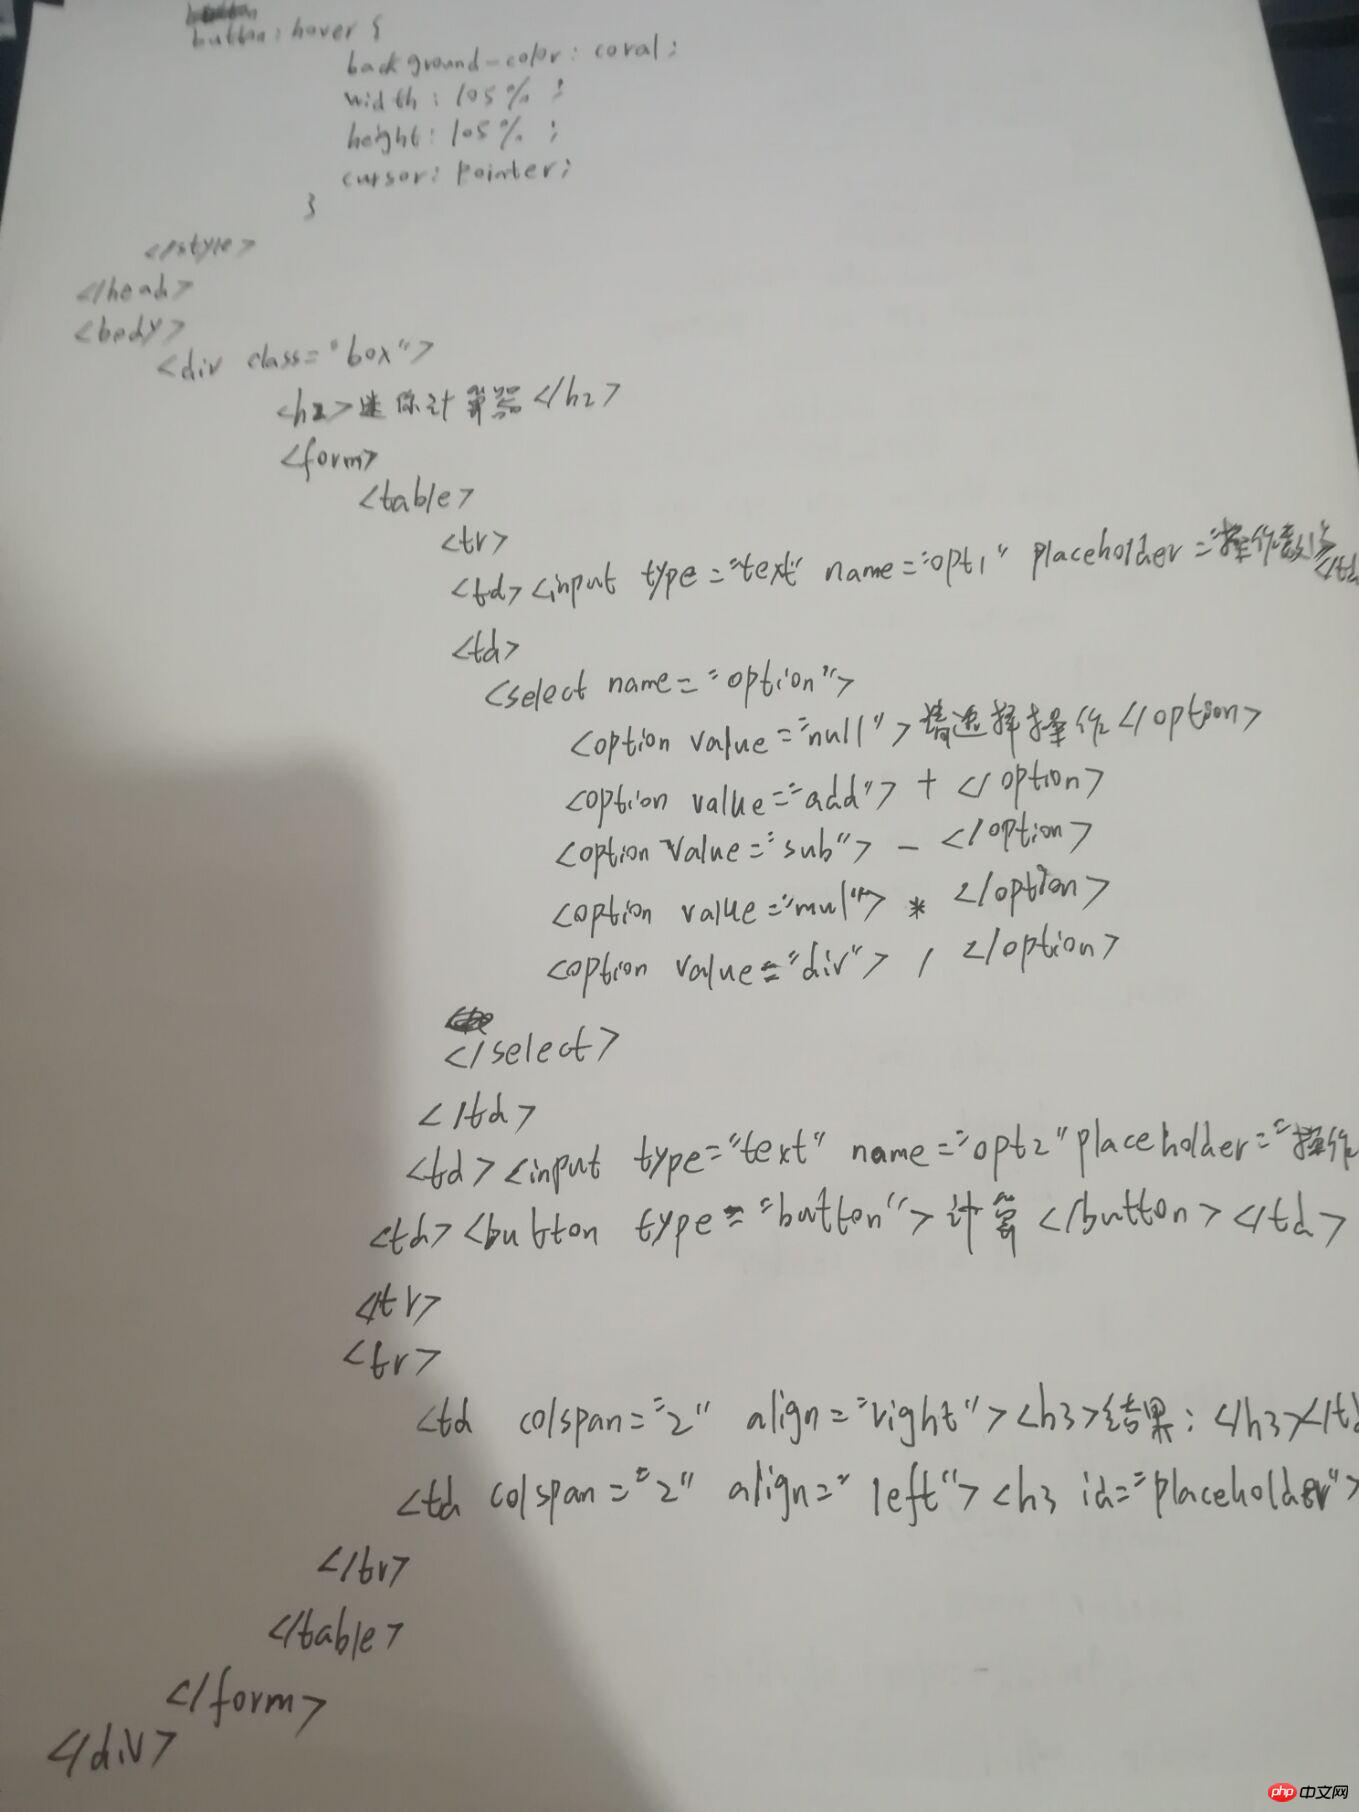 button:hover {
background-color: coral;
width: 105%;
height: 105%;
cursor: pointer;
}
</style>
</head>
<body>
<div class="box">
<h2>迷你计算器</h2>
<form>
<table>
<tr>
<td><input type="text" name="opt1" placeholder="操作数1"></td
<td>
<select name="option">
<option value="null">请选择操作</option>
<option value="add">+</option>
<option value="sub">-</option>
<option value="mul">*</option>
<option value="div">/</option>
</select>
</td>
<td><input type="text" name="opt2" placeholder="操作
<td><button type="button">计算</button></td>
</tr>
<tr>
<td colspan="2" align="right"><h3>结果:</h3></td
<td colspan="2" align="left"><h3 id="placeholder">
</tr>
</table>
</form>
</div>
php 中文网